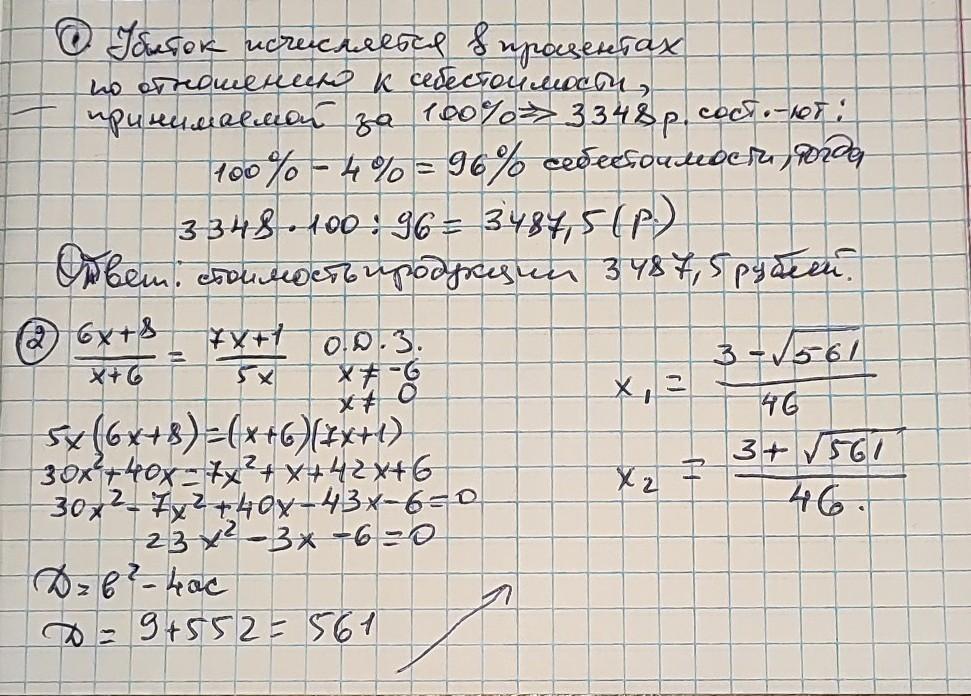 ① Убыток исчисляется в процентах
по отношению к себестоимости,
принимаемой за 100% => 3348 р. сост.-ют:
100% - 4% = 96% себестоимости, тогда
3348 · 100 : 96 = 3487,5 (р.)
Ответ: стоимость продукции 3487,5 рублей.
② (6x+8)/(x+6) = (7x+1)/(5x) О.D.З.
x ≠ -6
x ≠ 0
5x(6x+8)=(x+6)(7x+1)
30x²+40x=7x²+x+42x+6
30x²-7x²+40x-43x-6=0
23x²-3x-6=0
D=b²-4ac
D=9+552=561
x₁ = (3-√561)/46
x₂ = (3+√561)/46.